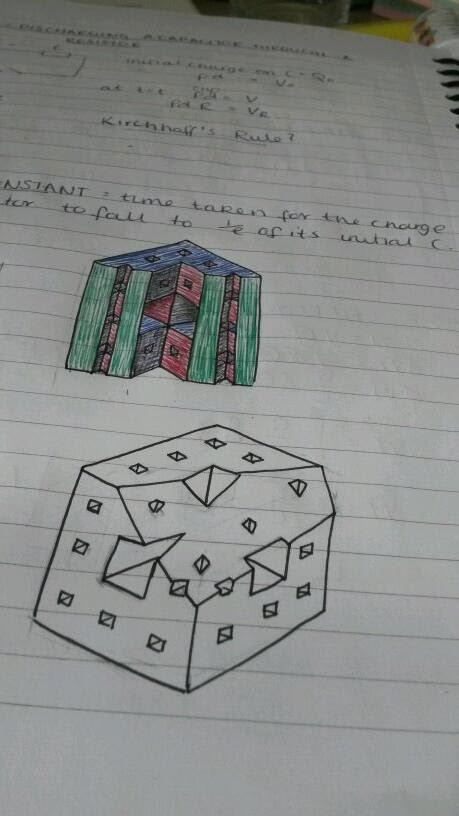 DISCHARGING A CAPACITOR THROUGH A
RESISTOR
initial charge on C = Q₀
pd = V₀
at t=t pd = V
pd R = VR
Kirchhoff's Rule?
NSTANT = time taken for the charge
tor to fall to 1/e of its initial C.